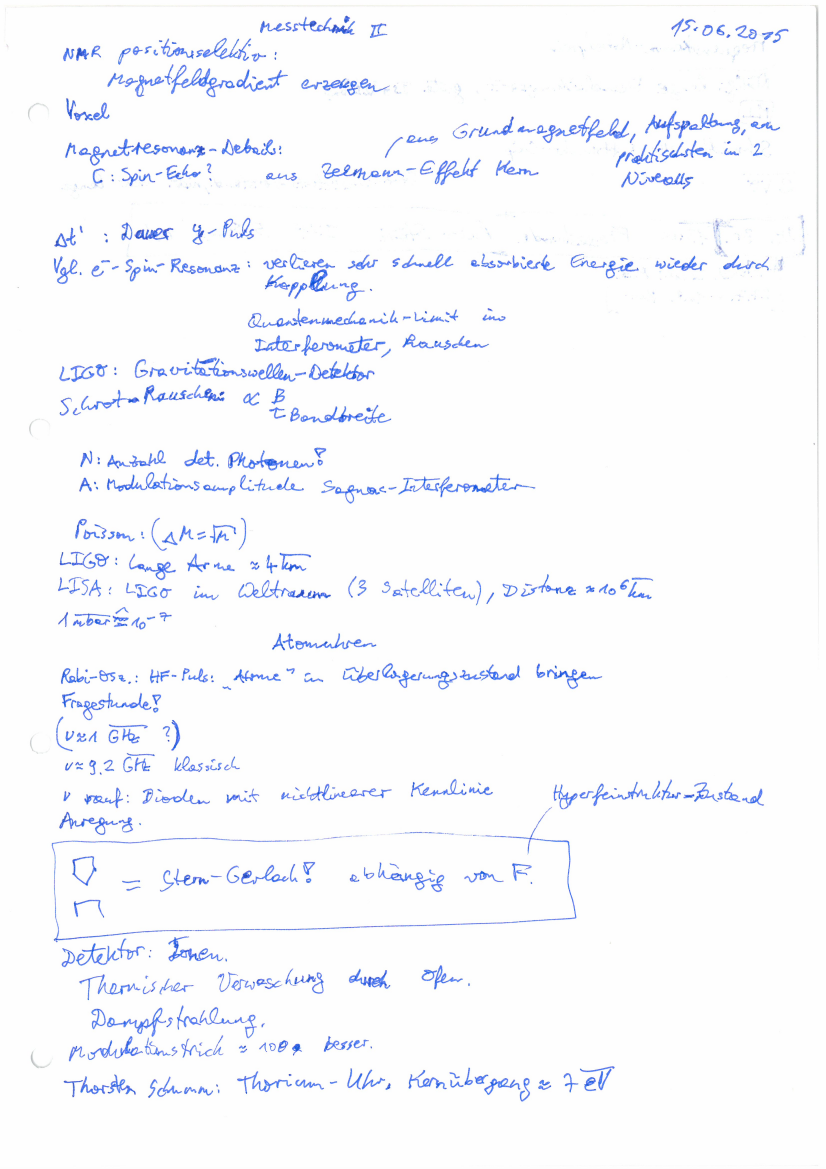 Messtechnik II
15.06.2015
NMR positionsselektiv:
Magnetfeldgradient erzeugen
Voxel
aus Grundmagnetfeld, Aufspaltung, am
Magnetresonanz-Details:
praktischsten in 2
C: Spin-Echo? aus Zeemann-Effekt Kern
Niveaus
Δt' : Dauer y-Puls
Vgl. e⁻-Spin-Resonanz: verlieren sehr schnell absorbierte Energie wieder durch
Kopplung.
Quantenmechanik-Limit im
Interferometer, Rauschen
LIGO: Gravitationswellen-Detektor
Schrot-Rauschen ∝ B
Bandbreite
N: Anzahl det. Photonen!
A: Modulationsamplitude Sagnac-Interferometer
Poisson: (ΔM=√M)
LIGO: Lange Arme ≈ 4 km
LISA: LIGO im Weltraum (3 Satelliten), Distanz ≈ 10⁶ km
1 mbar ≙ 10⁻⁷
Atomuhren
Rabi-Osz.: HF-Puls: „Atome" in Überlagerungszustand bringen
Fragestunde!
(ν≈1 GHz ?)
ν≈9.2 GHz klassisch
ν rauf: Dioden mit nichtlinearer Kennlinie
Hyperfeinstruktur-Zustand
Anregung.
= Stern-Gerlach! abhängig von F.
Detektor: Ionen.
Thermischer Verwaschung durch Ofen.
Dampfstrahlung.
≈ 100 besser.
Thorsten Schumm: Thorium-Uhr, Kernübergang ≈ 7 eV